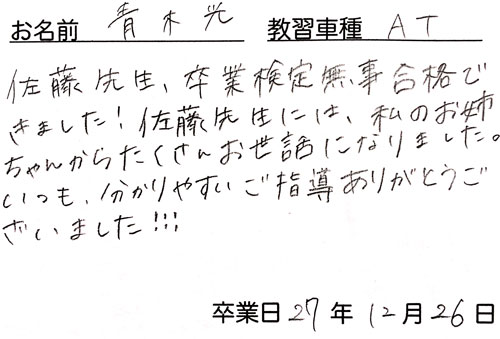 お名前 青木光 教習車種 AT
佐藤先生、卒業検定無事合格で
きました!佐藤先生には、私のお姉
ちゃんからたくさんお世話になりました。
いつも、分かりやすいご指導ありがとうご
ざいました!!!
卒業日27年12月26日